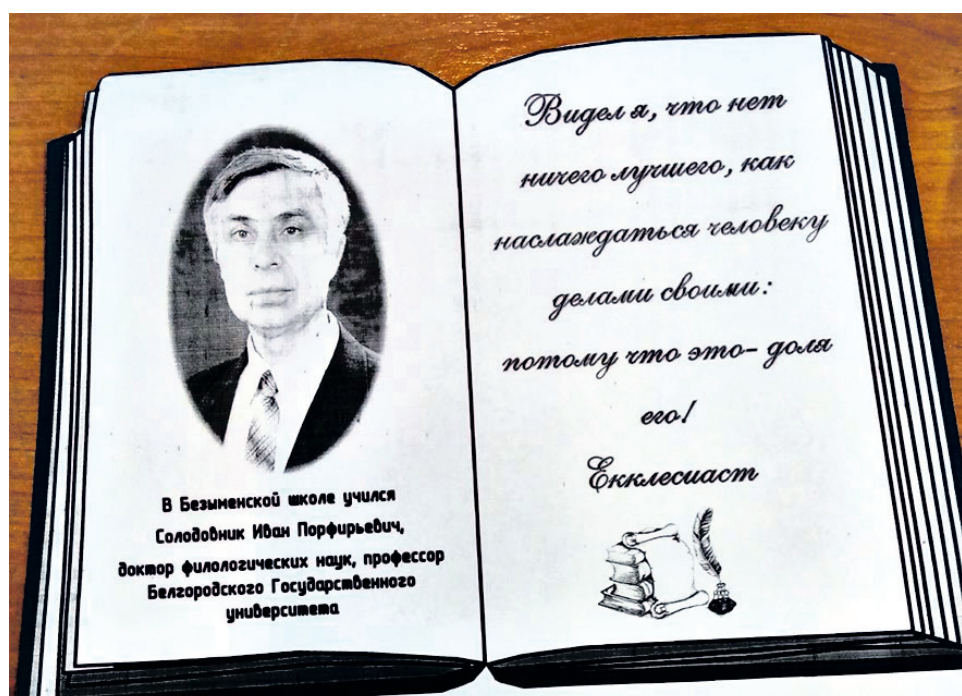 В Безыменской школе учился
Солодовник Иван Порфирьевич,
доктор филологических наук, профессор
Белгородского Государственного
университета
Видел я, что нет
ничего лучшего, как
наслаждаться человеку
делами своими:
потому что это- доля
его!
Екклесиаст